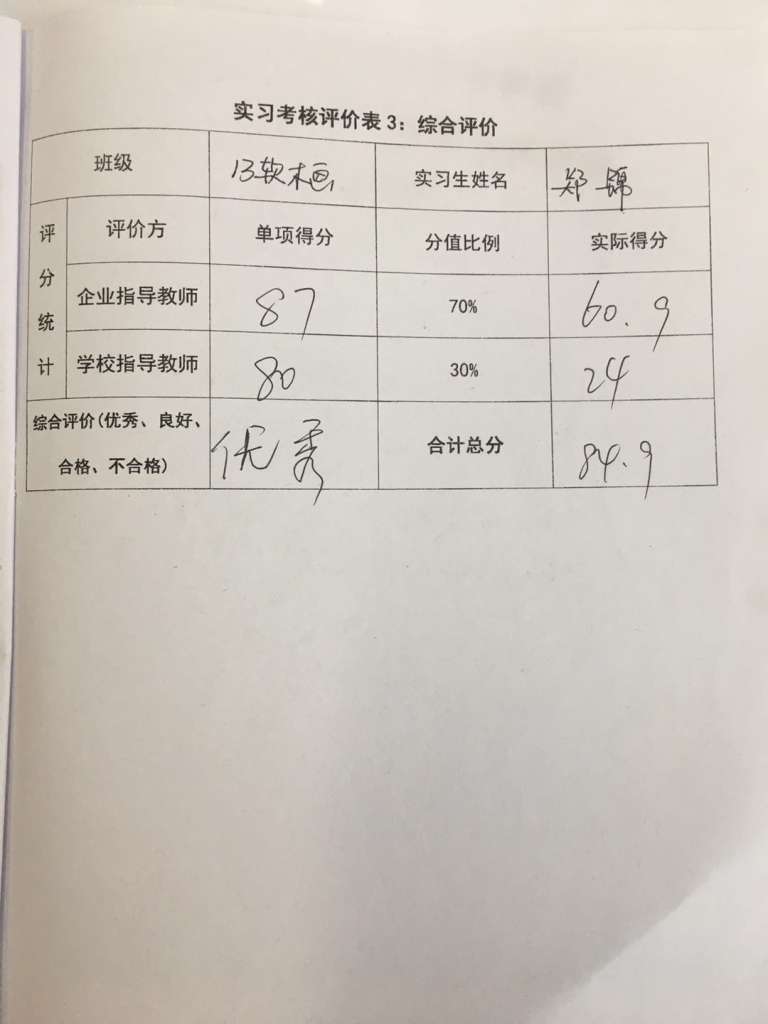 实习考核评价表3：综合评价
班级 13软木画 实习生姓名 郑锦
评分统计
评价方 单项得分 分值比例 实际得分
企业指导教师 87 70% 60.9
学校指导教师 80 30% 24
综合评价(优秀、良好、
合格、不合格) 优秀 合计总分 84.9